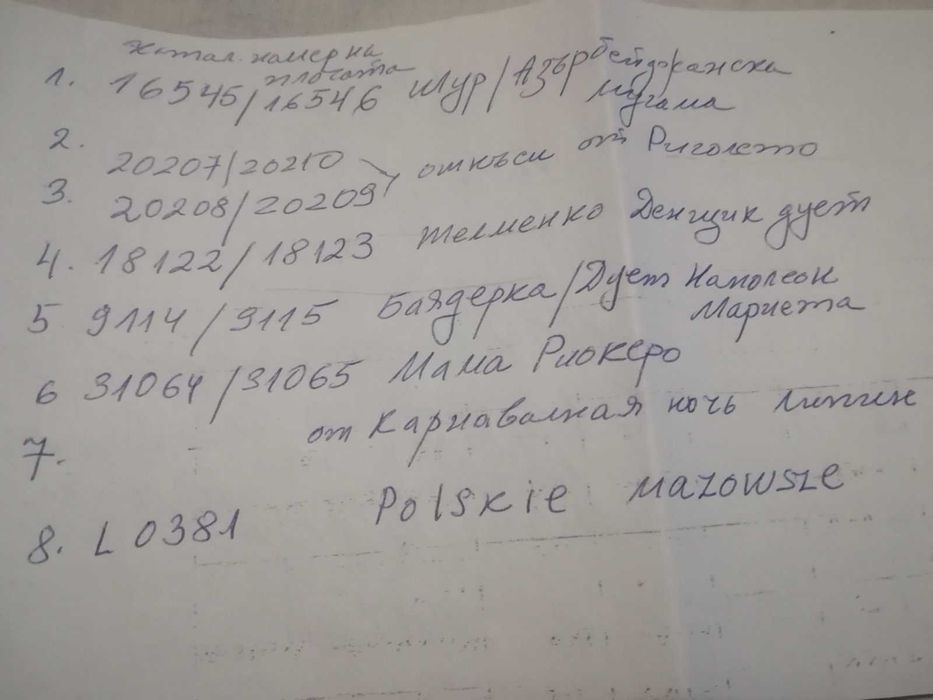 Катал. номер на
плочата
1. 16545/16546 Шур/Азърбейджанска
мугама
2. 20207/20210
откъси от Риголето
3. 20208/20209
4. 18122/18123 Шелменко Денщик дует
5 9114/9115 Баядерка/Дует Наполеон
Мариета
6 31064/31065 Мама Риокеро
от Карнавалная ночь
7.
8. L 0381 Polskie mazowsze